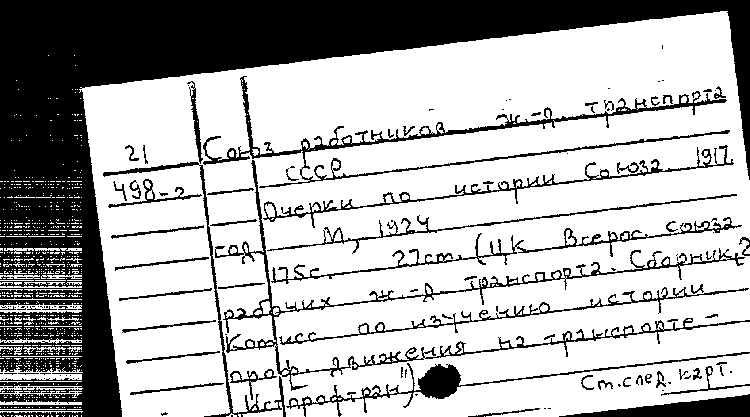 21 Союз работников ж.-д. транспорта
498-2 СССР.
Очерки по истории Союза. 1917
год М, 1924
175с. 27см. (ЦК Всерос. союза
рабочих ж.-д. транспорта. Сборник 2
Комисс по изучению истории
проф. движения на транспорте-
"Истпрофтран")
См.след. карт.